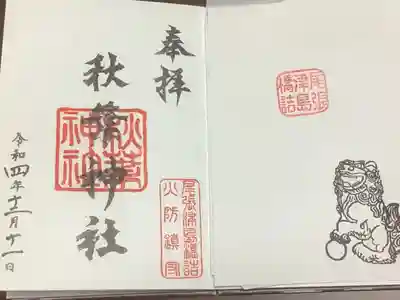 奉拝
秋葉神社
秋葉神社
尾張津島橋詰
火防鎮守
令和四年十二月十一日
尾張
津島
橋詰